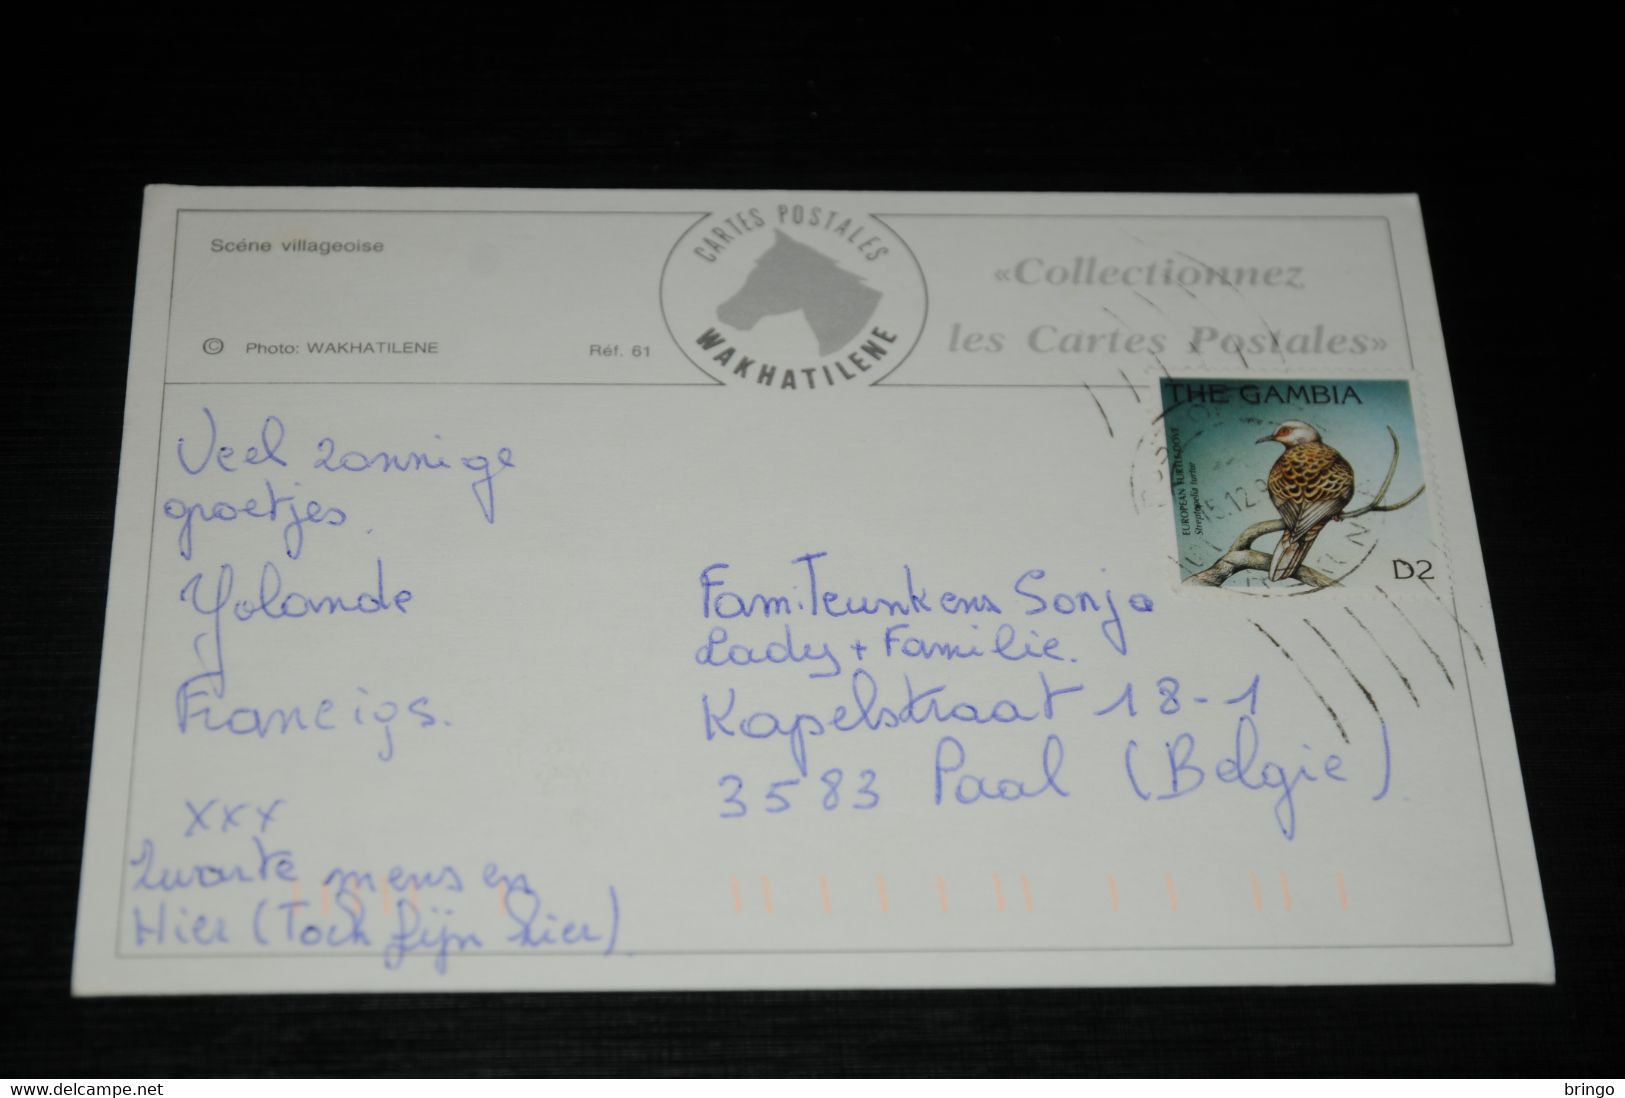 Scéne villageoise
© Photo: WAKHATILENE
Réf. 61
CARTES POSTALES
WAKHATILENE
«Collectionnez
les Cartes Postales»
THE GAMBIA
EUROPEAN TURTLE-DOVE
Streptopelia turtur
D2
15.12.9
Veel zonnige
groetjes.
Yolande
Francigs.
xxx
Zwarte mensen
Hier (Toch fijn hier)
Fam. Teunkens Sonja
Lady + Familie.
Kapelstraat 18-1
3583 Paal (Belgie).
https://www.delcampe.net
bringo